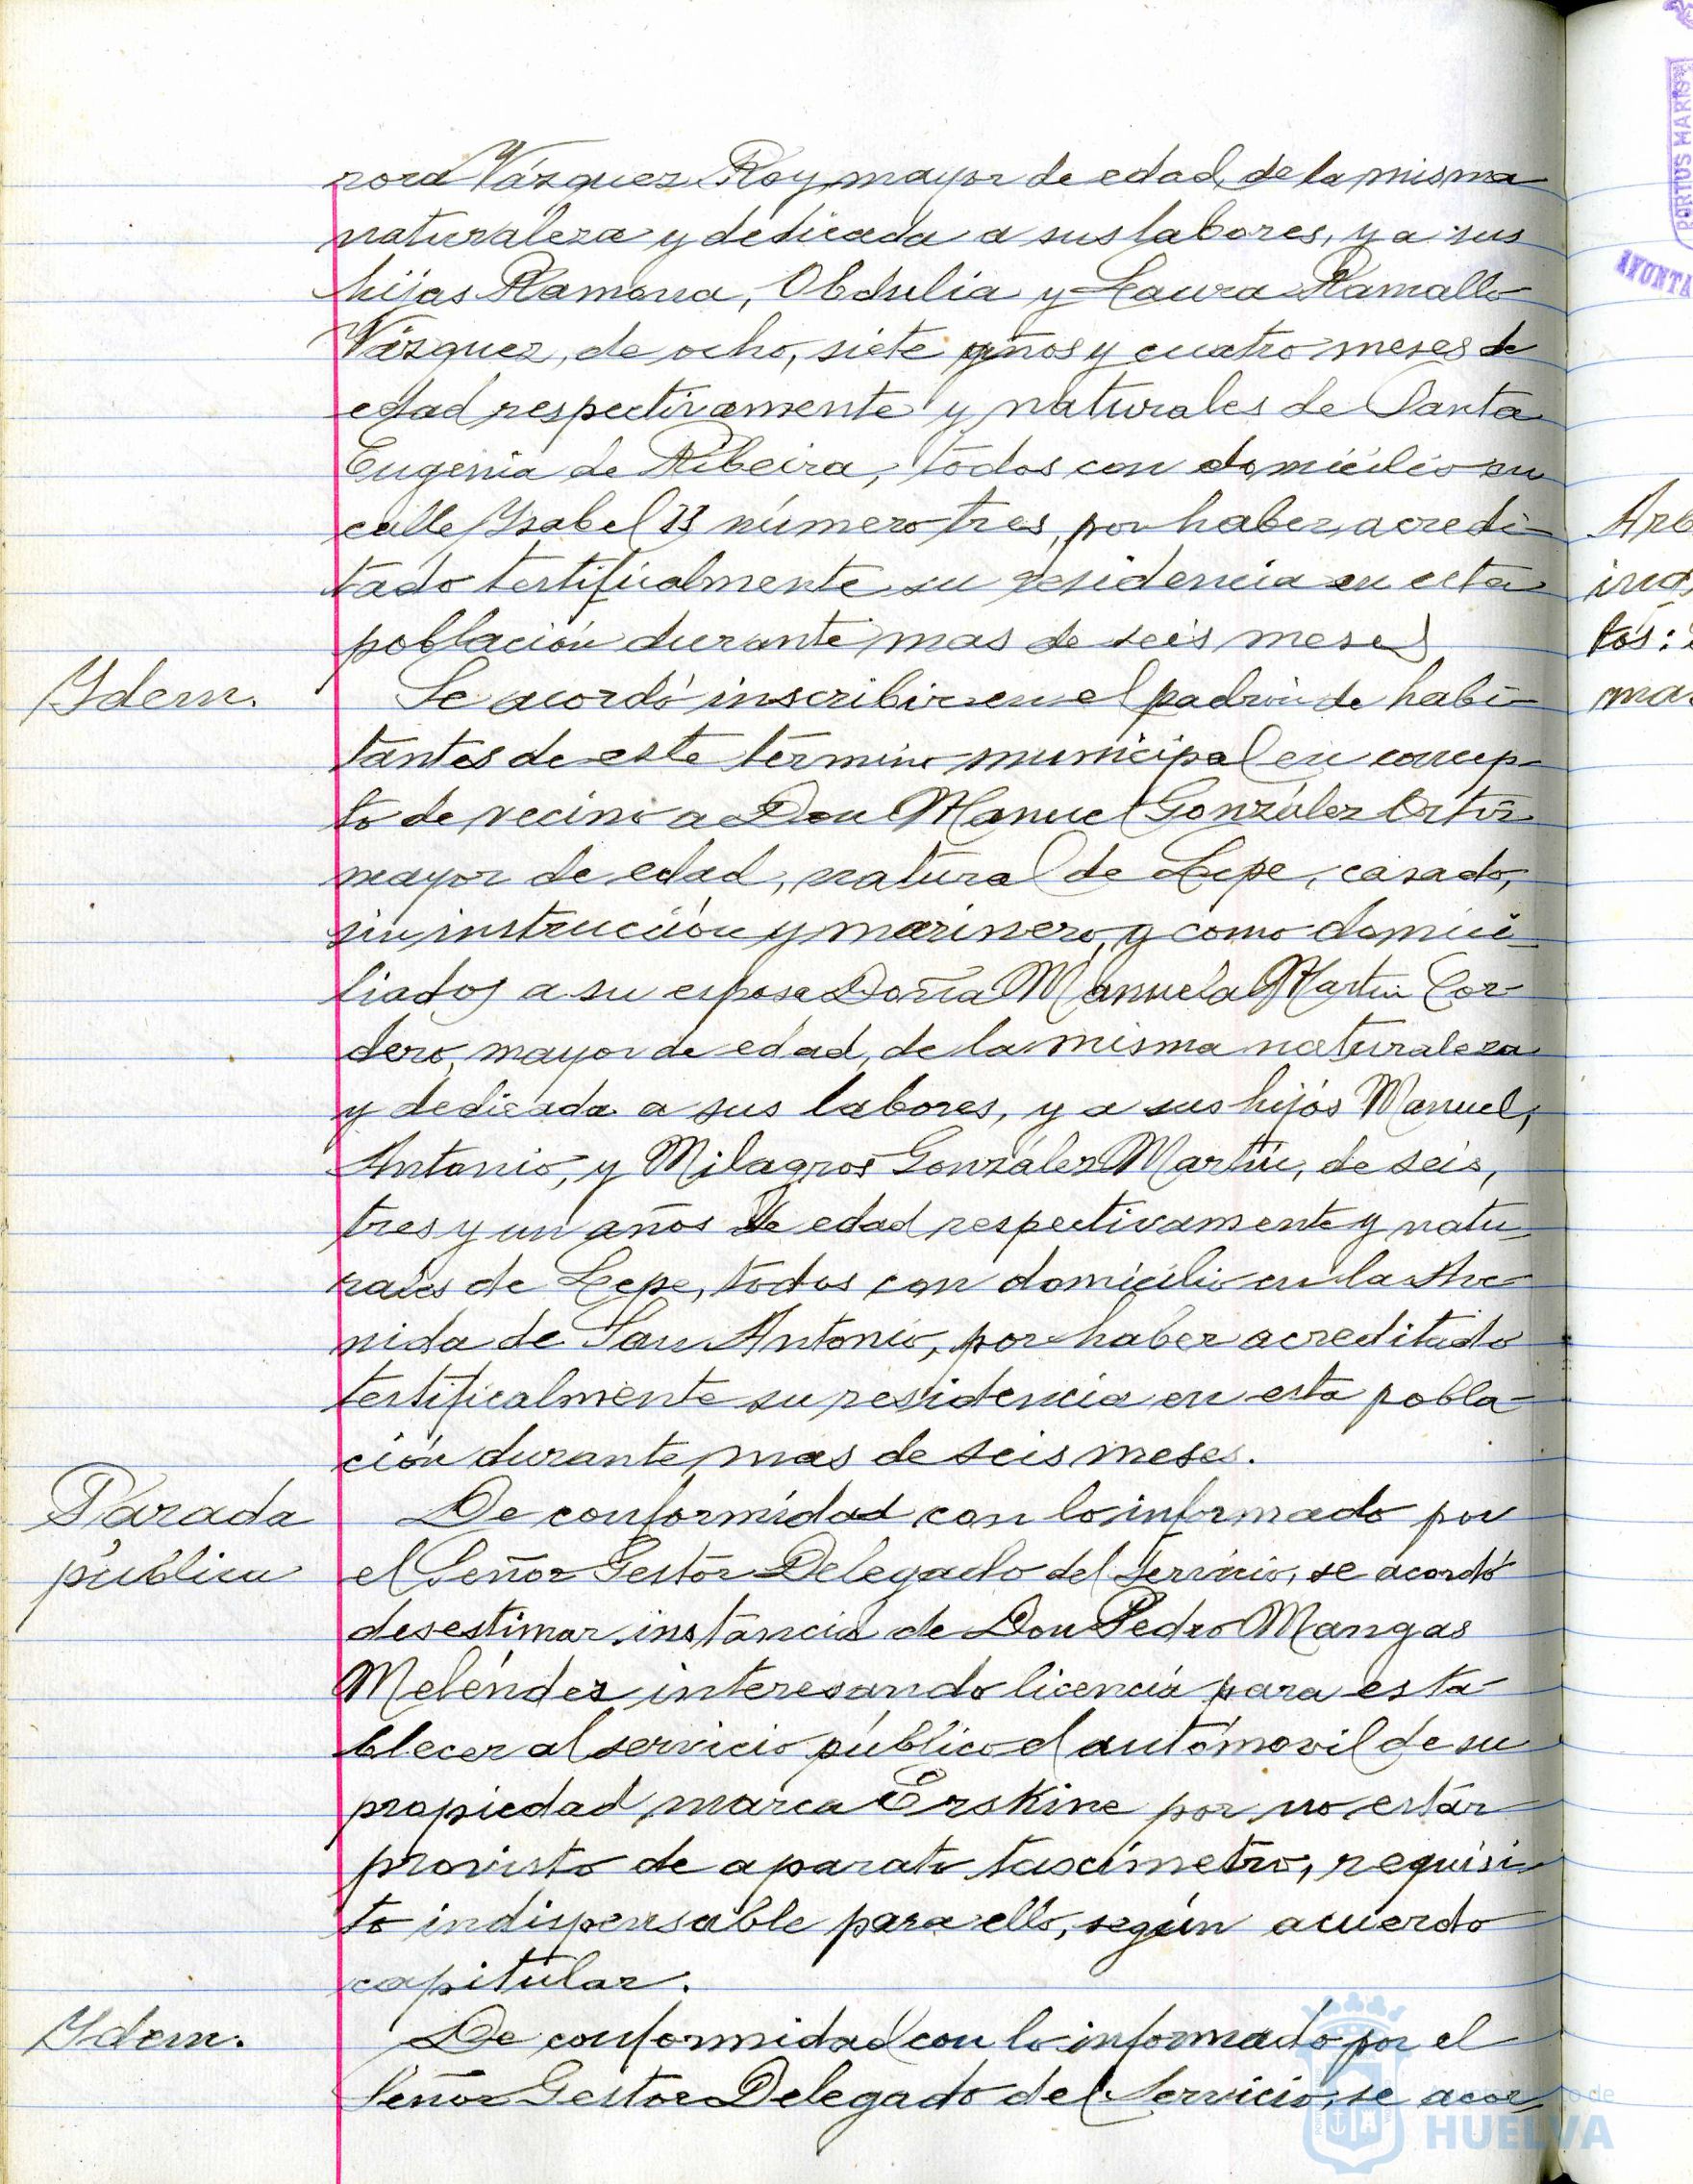 nora Vázquez Roy, mayor de edad, de la misma
naturaleza y dedicada a sus labores, y a sus
hijas Ramona, Obdulia y Laura Ramallo
Vázquez, de ocho, siete años y cuatro meses de
edad respectivamente y naturales de Santa
Eugenia de Ribeira, todos con domicilio en
calle Ysabel II número tres, por haber acredi-
tado testificalmente su residencia en esta
población durante mas de seis meses
Ydem.
Se acordó inscribir en el padrón de habi-
tantes de este término municipal en concep-
to de vecino a Don Manuel González
mayor de edad, natural de Lepe, casado,
sin instrucción y marinero, y como domici-
liados a su esposa Doña Manuela Martin Cor-
dero, mayor de edad, de la misma naturaleza
y dedicada a sus labores, y a sus hijos Manuel,
Antonio, y Milagros González Martín, de seis,
tres y un años de edad respectivamente y natu-
rales de Lepe, todos con domicilio en la Ave-
nida de San Antonio, por haber acreditado
testificalmente su residencia en esta pobla-
ción durante mas de seis meses.
Parada
pública
De conformidad con lo informado por
el Señor Gestor Delegado del Servicio, se acordó
desestimar instancia de Don Pedro Mangas
Meléndez interesando licencia para esta-
blecer al servicio público el automovil de su
propiedad marca Erskine por no estar
provisto de aparato taxímetro, requisi-
to indispensable para ello, según acuerdo
capitular.
Ydem.
De conformidad con lo informado por el
Señor Gestor Delegado del Servicio, se acor
PORTUS MARIS
AYUNTA
Arb
tos:
ma
de
HUELVA